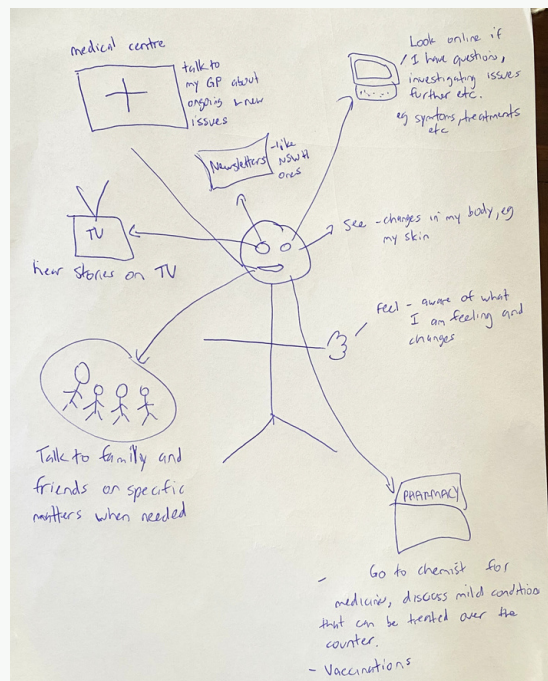 medical centre
talk to
my GP about
ongoing & new
issues
Look online if
I have questions,
investigating issues
further etc.
eg symtoms, treatments
etc
Newsletters
- like
NSWH
ones
TV
hear stories on TV
See - changes in my body, eg
my skin
Feel - aware of what
I am feeling and
changes
Talk to family and
friends on specific
matters when needed
PHARMACY
- Go to chemist for
medicine, discuss mild condition
that can be treated over the
counter.
- Vaccinations